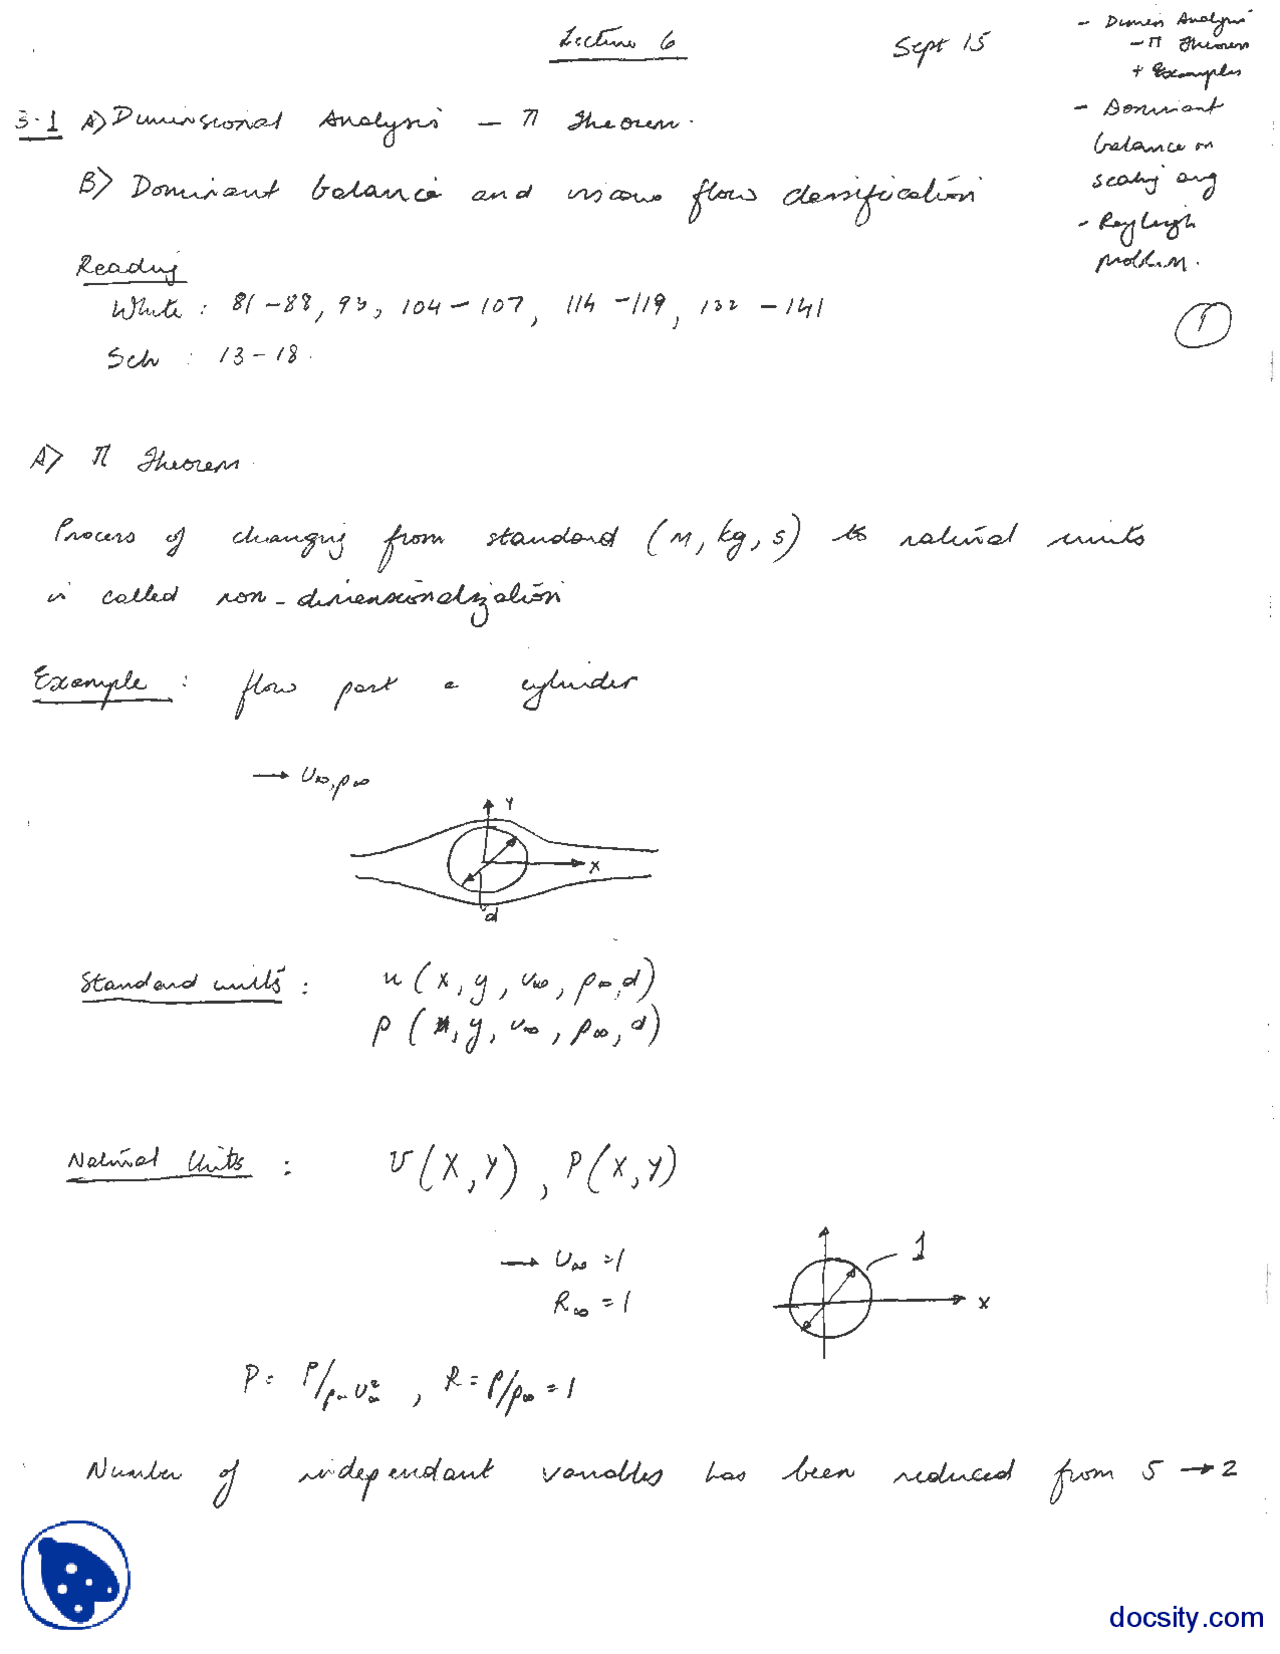 Lecture 6
Sept 15
- Dimen Analysis
- π Theorem
+ Examples
- Dominant
balance or
scaling arg
- Rayleigh
problem.
①
3.1 A) Dimensional Analysis - π Theorem.
B) Dominant balance and viscous flow classification
Reading
White : 81-88, 93, 104-107, 114-119, 132-141
Sch : 13-18.
A) π Theorem.
Process of changing from standard (m, kg, s) to natural units
is called non-dimensionalization
Example : flow past a cylinder
→ U∞, ρ∞
Y
X
d
Standard units : u (x, y, U∞, ρ∞, d)
p (x, y, U∞, ρ∞, d)
Natural Units : U(X, Y), P(X, Y)
→ U∞ = 1
R∞ = 1
1
X
P = P/ρ∞U∞², R = ρ/ρ∞ = 1
Number of independant variables has been reduced from 5 → 2
docsity.com